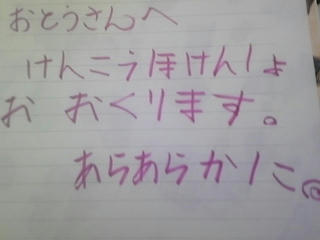 おとうさんへ
けんこうほけんしょ
お おくります。
あらあらかしこ。